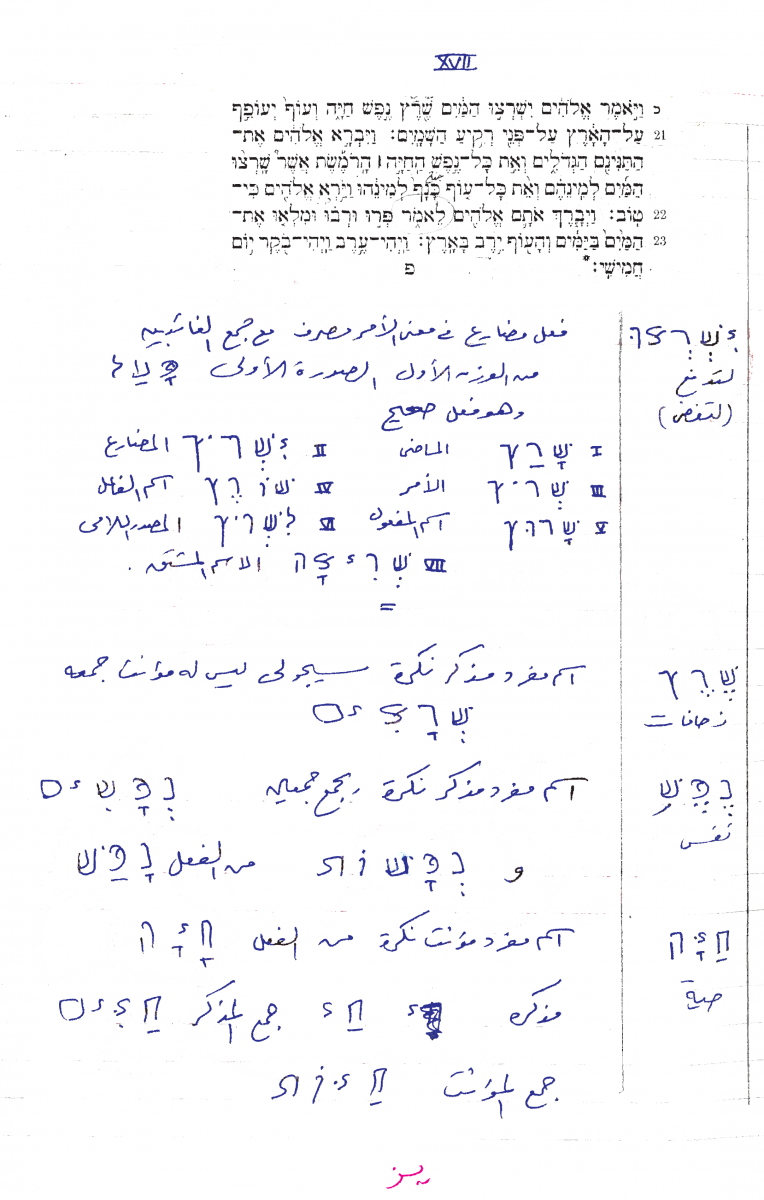 XVII
כ וַיֹּ֣אמֶר אֱלֹהִ֔ים יִשְׁרְצ֣וּ הַמַּ֔יִם שֶׁ֖רֶץ נֶ֣פֶשׁ חַיָּ֑ה וְעוֹף֙ יְעוֹפֵ֣ף
21 עַל־הָאָ֔רֶץ עַל־פְּנֵ֖י רְקִ֥יעַ הַשָּׁמָֽיִם׃ וַיִּבְרָ֣א אֱלֹהִ֔ים אֶת־
הַתַּנִּינִ֖ם הַגְּדֹלִ֑ים וְאֵ֣ת כָּל־נֶ֣פֶשׁ הַֽחַיָּ֣ה ׀ הָֽרֹמֶ֡שֶׂת אֲשֶׁר֩ שָׁרְצ֨וּ
הַמַּ֜יִם לְמִֽינֵהֶ֗ם וְאֵ֨ת כָּל־ע֤וֹף כָּנָף֙ לְמִינֵ֔הוּ וַיַּ֥רְא אֱלֹהִ֖ים כִּי־
22 טֽוֹב׃ וַיְבָ֧רֶךְ אֹתָ֛ם אֱלֹהִ֖ים לֵאמֹ֑ר פְּר֣וּ וּרְב֗וּ וּמִלְא֤וּ אֶת־
23 הַמַּ֙יִם֙ בַּיַּמִּ֔ים וְהָע֖וֹף יִ֥רֶב בָּאָֽרֶץ׃ וַֽיְהִי־עֶ֥רֶב וַֽיְהִי־בֹ֖קֶר י֥וֹם
חֲמִישִֽׁי׃ פ
יִשְׁרְצוּ فعل مضارع في معنى الأمر مصرف مع جمع الغائبين
لتدفع من الوزن الأول الصورة الأولى פָּעַל
(لتفض) وهو فعل صحيح
I שָׁרַץ الماضى II יִשְׁרֹץ المضارع
III שְׁרֹץ الأمر IV שׁוֹרֵץ اسم الفاعل
V שָׁרוּץ اسم المفعول VI לִשְׁרֹץ المصدر اللامى
VII שְׁרִיצָה الاسم المشتق .
שֶׁרֶץ اسم مفرد مذكر نكرة سيجولى ليس له مؤنث جمعه
زحافات שְׁרָצִים
נֶפֶשׁ اسم مفرد مذكر نكرة يجمع جمعين נְפָשִׁים
نفس و נְפָשׁוֹת من الفعل נָפַשׁ
חַיָּה اسم مفرد مؤنث نكرة من الفعل חָיָה
حية مذكره חַי جمع المذكر חַיִּים
جمع المؤنث חַיּוֹת
يز